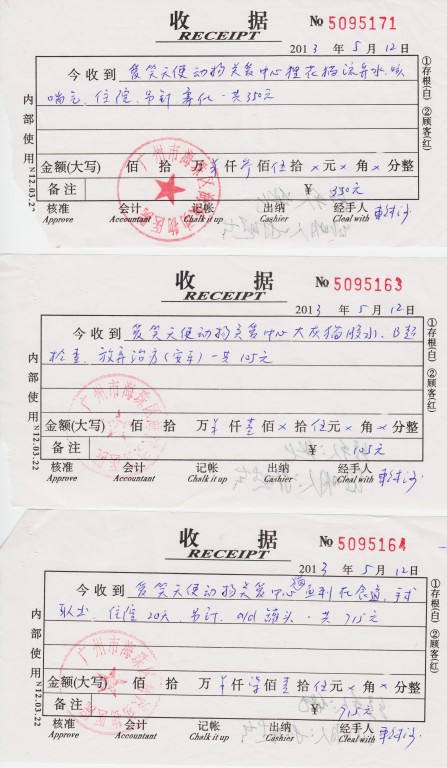 收 据
RECEIPT
No 5095171
2013 年 5 月 12 日
今收到 爱笑天使动物关爱中心狸花猫流鼻水.咳
喘气、住院、吊针 雾化 一共350元
金额(大写) 佰 拾 万 ¥ 仟 叁 佰 伍 拾 × 元 × 角 × 分整
备注 ¥ 350元
核准 会计 记帐 出纳 经手人
Approve Accountant Chalk it up Cashier Cleal with
内部使用
N12.03.2
①存根(白) ②顾客(红)
广州市海珠区 动物医院
收 据
RECEIPT
No 5095163
2013 年 5 月 12 日
今收到 爱笑天使动物关爱中心 大灰猫 腹水. B超
检查、放弃治疗(安乐) 一共 105元
金额(大写) 佰 拾 万 ¥ 仟 壹 佰 × 拾 伍 元 × 角 × 分整
备注 ¥ 105元
核准 会计 记帐 出纳 经手人
Approve Accountant Chalk it up Cashier Cleal with
内部使用
N12.03.22
①存根(白) ②顾客(红)
广州市海珠区
收 据
RECEIPT
No 5095164
2013 年 5 月 12 日
今收到 爱笑天使动物关爱中心 猫 鱼刺在食道、手术
取出、住院20天、吊针、a/d罐头、共 715元
金额(大写) 佰 拾 万 ¥ 仟 柒 佰 壹 拾 伍 元 × 角 × 分整
备注 ¥ 715元
核准 会计 记帐 出纳 经手人
Approve Accountant Chalk it up Cashier Cleal with
内部使用
N12.03.22
①存根(白) ②顾客(红)
广州市海珠区